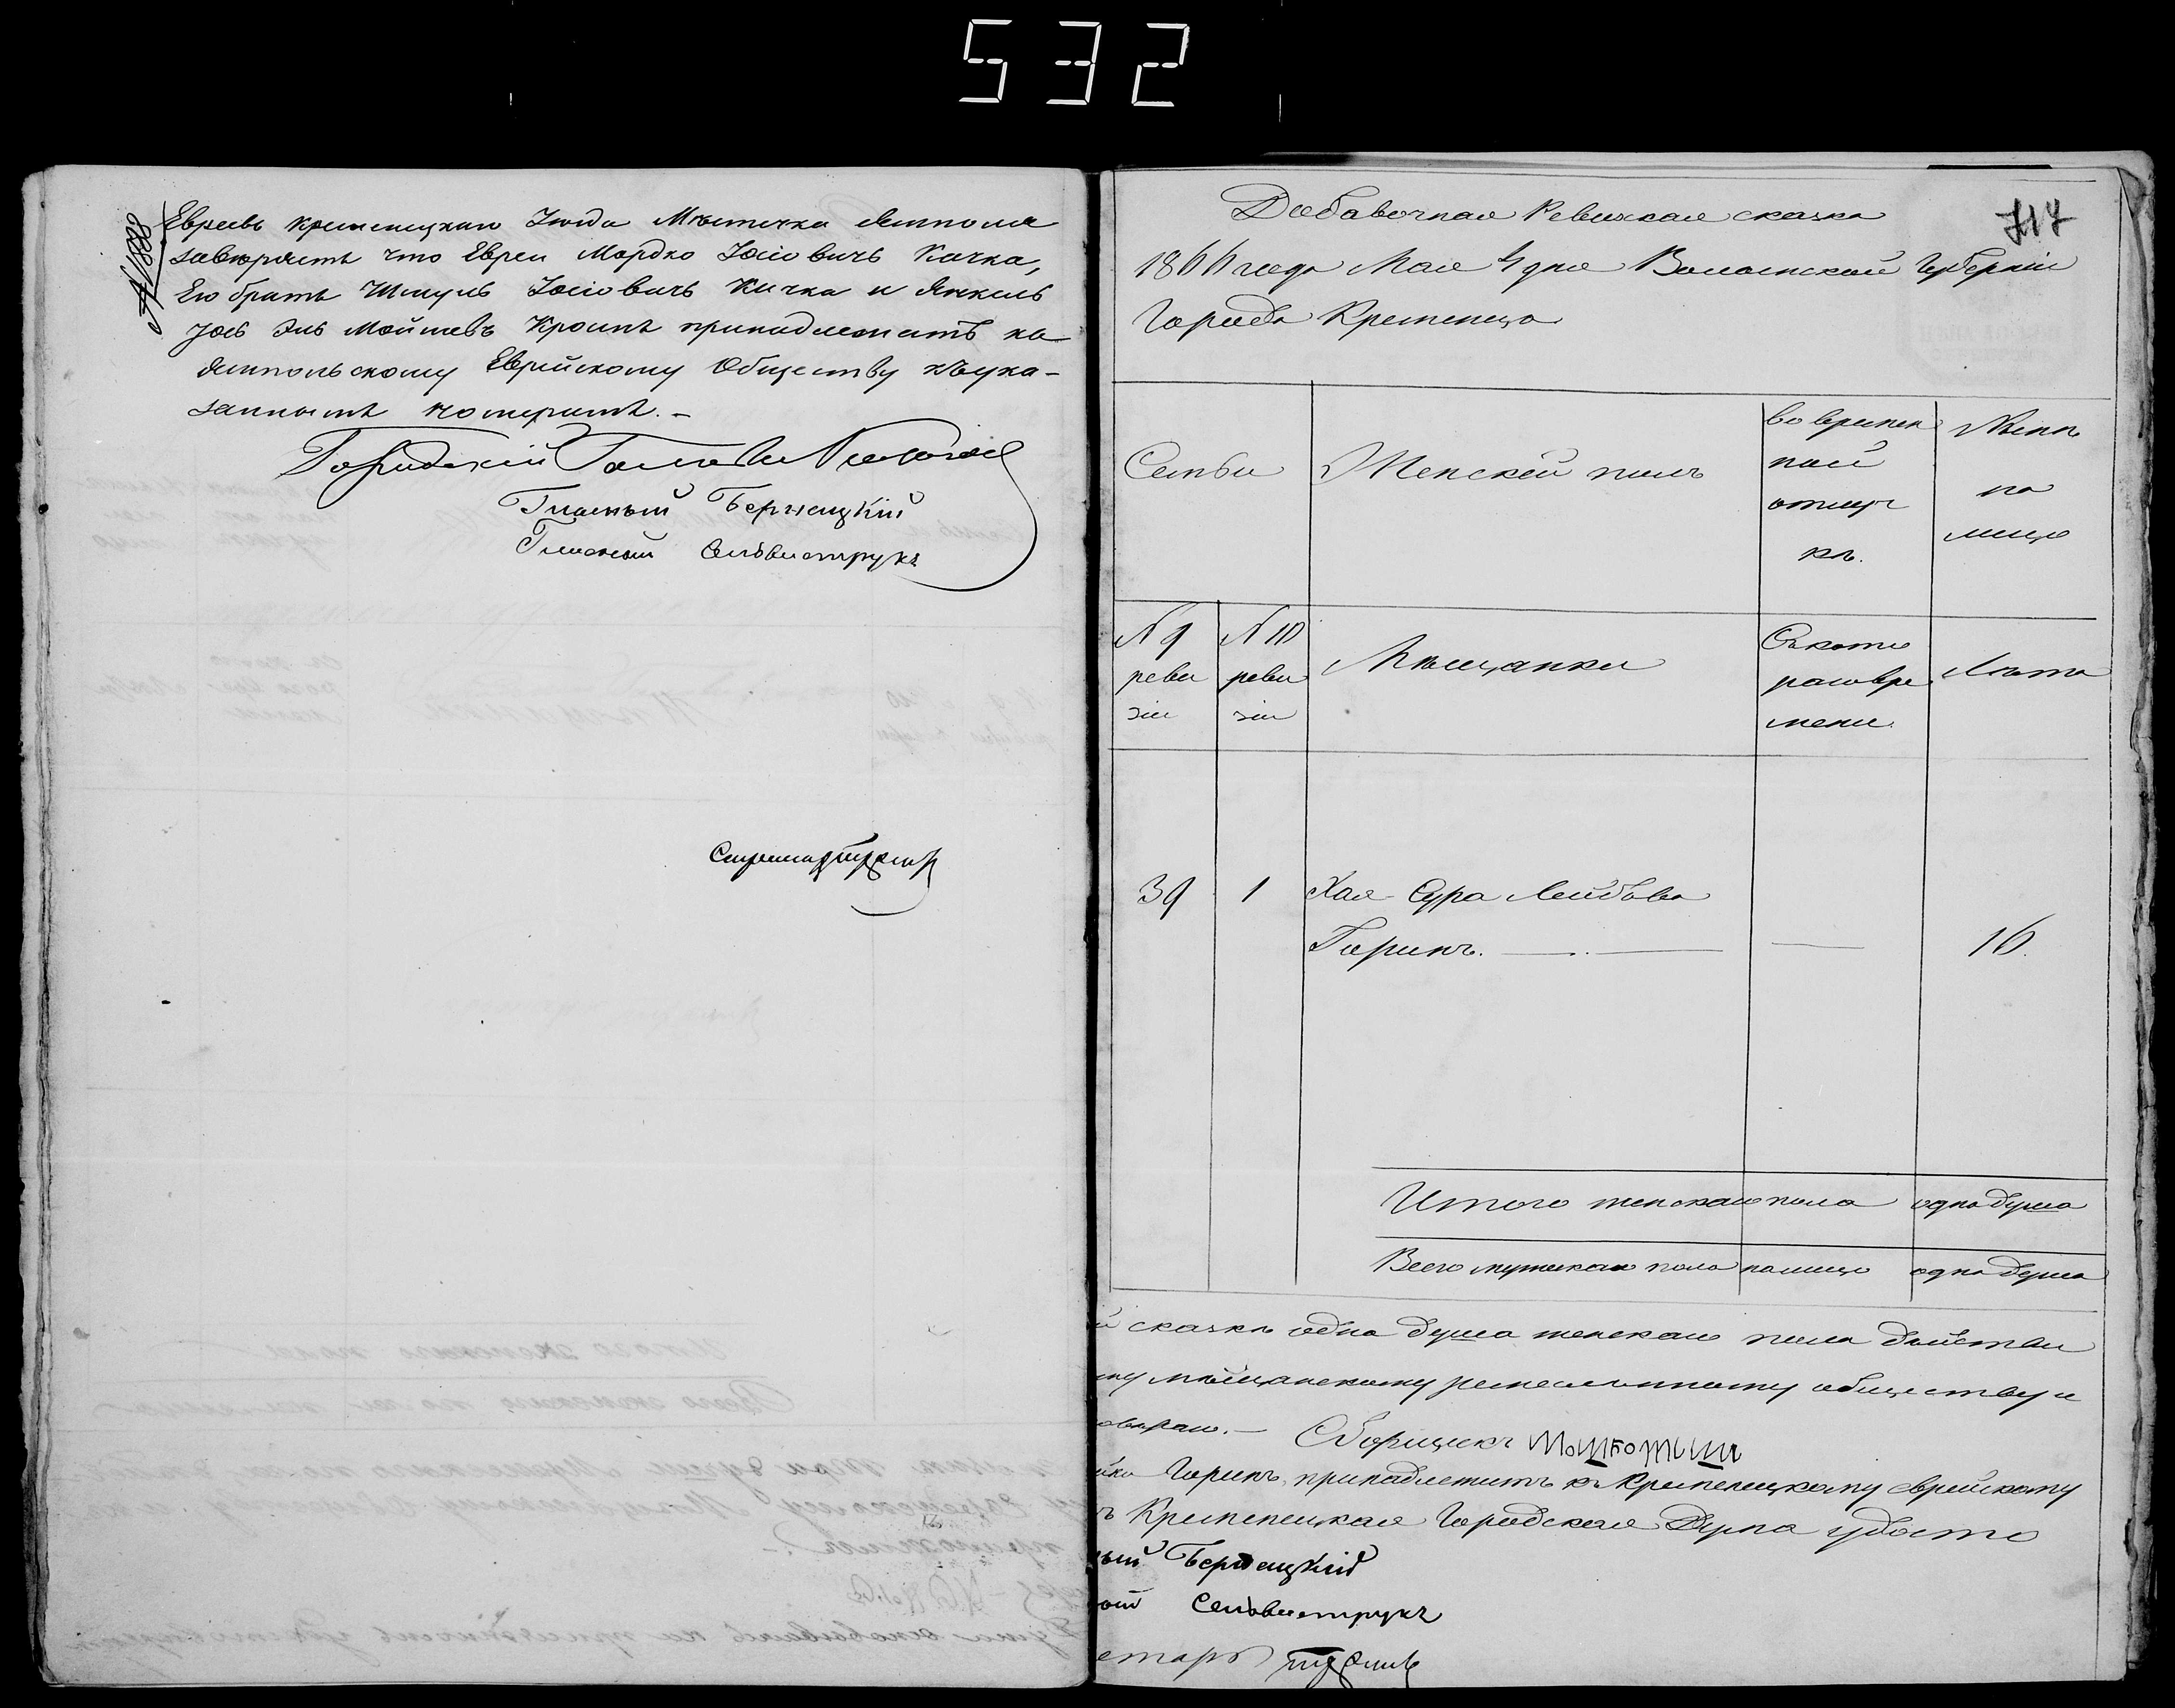 532
№ 1888
Евреевъ кременецкаго уѣзда Мѣстечка Ямполя
завѣряетъ что Евреи Мордко Іосіовичъ Кичка,
Его братъ Шмуль Іосіовичъ Кичка и Янкель
Мойшевъ принадлежатъ къ
Ямпольскому Еврейскому Обществу подъука-
заннымъ номерамъ. –
Городской Голова
Гласный Бернецкій
Гласный Сельвиструкъ
Добавочная Ревизкая сказка
717
1866 года Мая 4 дня Волынской Губерніи
Города Кременца
Семьи
Женскій полъ
во времен
ной
отлуч
кѣ.
Нынѣ
на
лицо
N 9
реви
зіи
N 10
реви
зіи
Мѣщанки
Съкото
раговре
мени.
Лѣта
39 1 Хая Сура Лейбова
Горинъ. — — 16.
Итого женскаго пола одна душа
Всего мужскаго пола налицо одна душа
й сказкѣ одна душа женскаго пола дѣйстви
му мѣщанскому ремесленному обществу и
Сборщикъ
Горинъ, принадлежитъ къ Кременецкому еврейскому
ъ Кременецкая Городская Дума удосто
ный Бернецкій
ный Сельвиструкъ
етарь